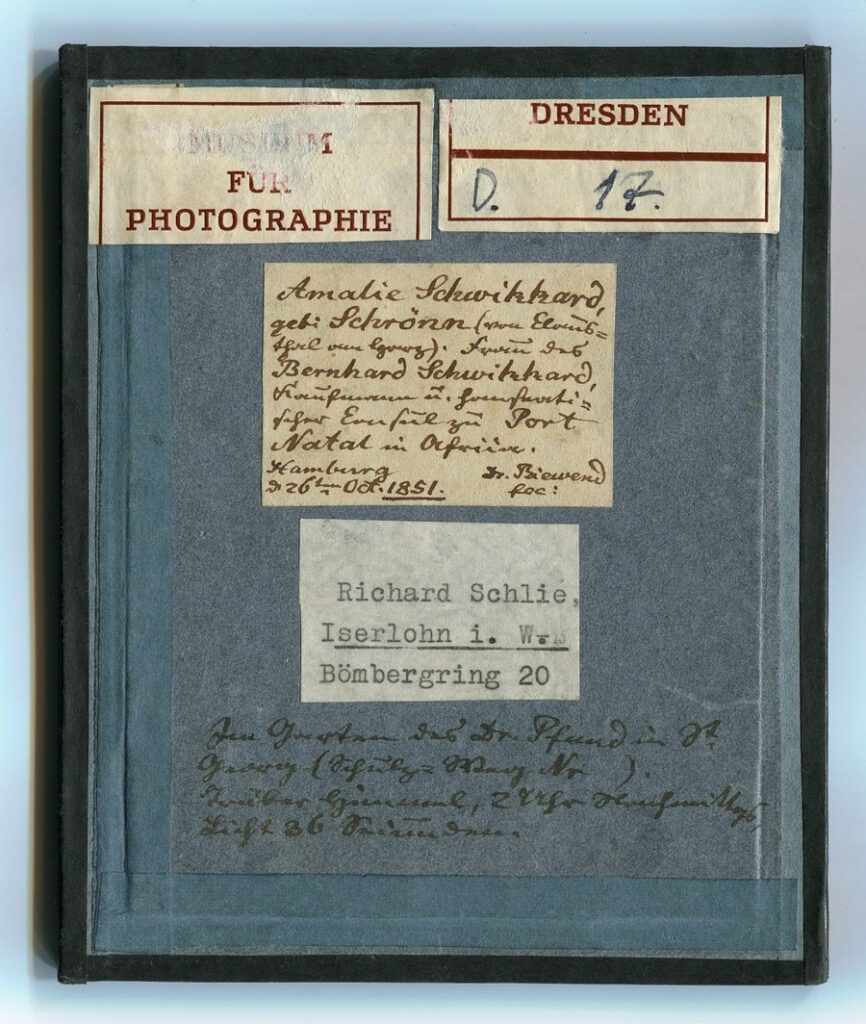 MUSEUM
FÜR
PHOTOGRAPHIE
DRESDEN
D. 17.
Amalie Schwikkard,
geb: Schrönn (von Claus=
thal am Harz). Frau des
Bernhard Schwikkard,
Kaufmann u. hanseati=
scher Consul zu Port
Natal in Africa.
Hamburg
d. 26ten Oct. 1851.
Dr. Biewend
fec:
Richard Schlie,
Iserlohn i. W.
Bömbergring 20
Im Garten des Dr. Pfund in St.
Georg (Schulz= Weg No ).
Trüber Himmel, 2 Uhr Nachmittgs,
Licht 36 Secunden.